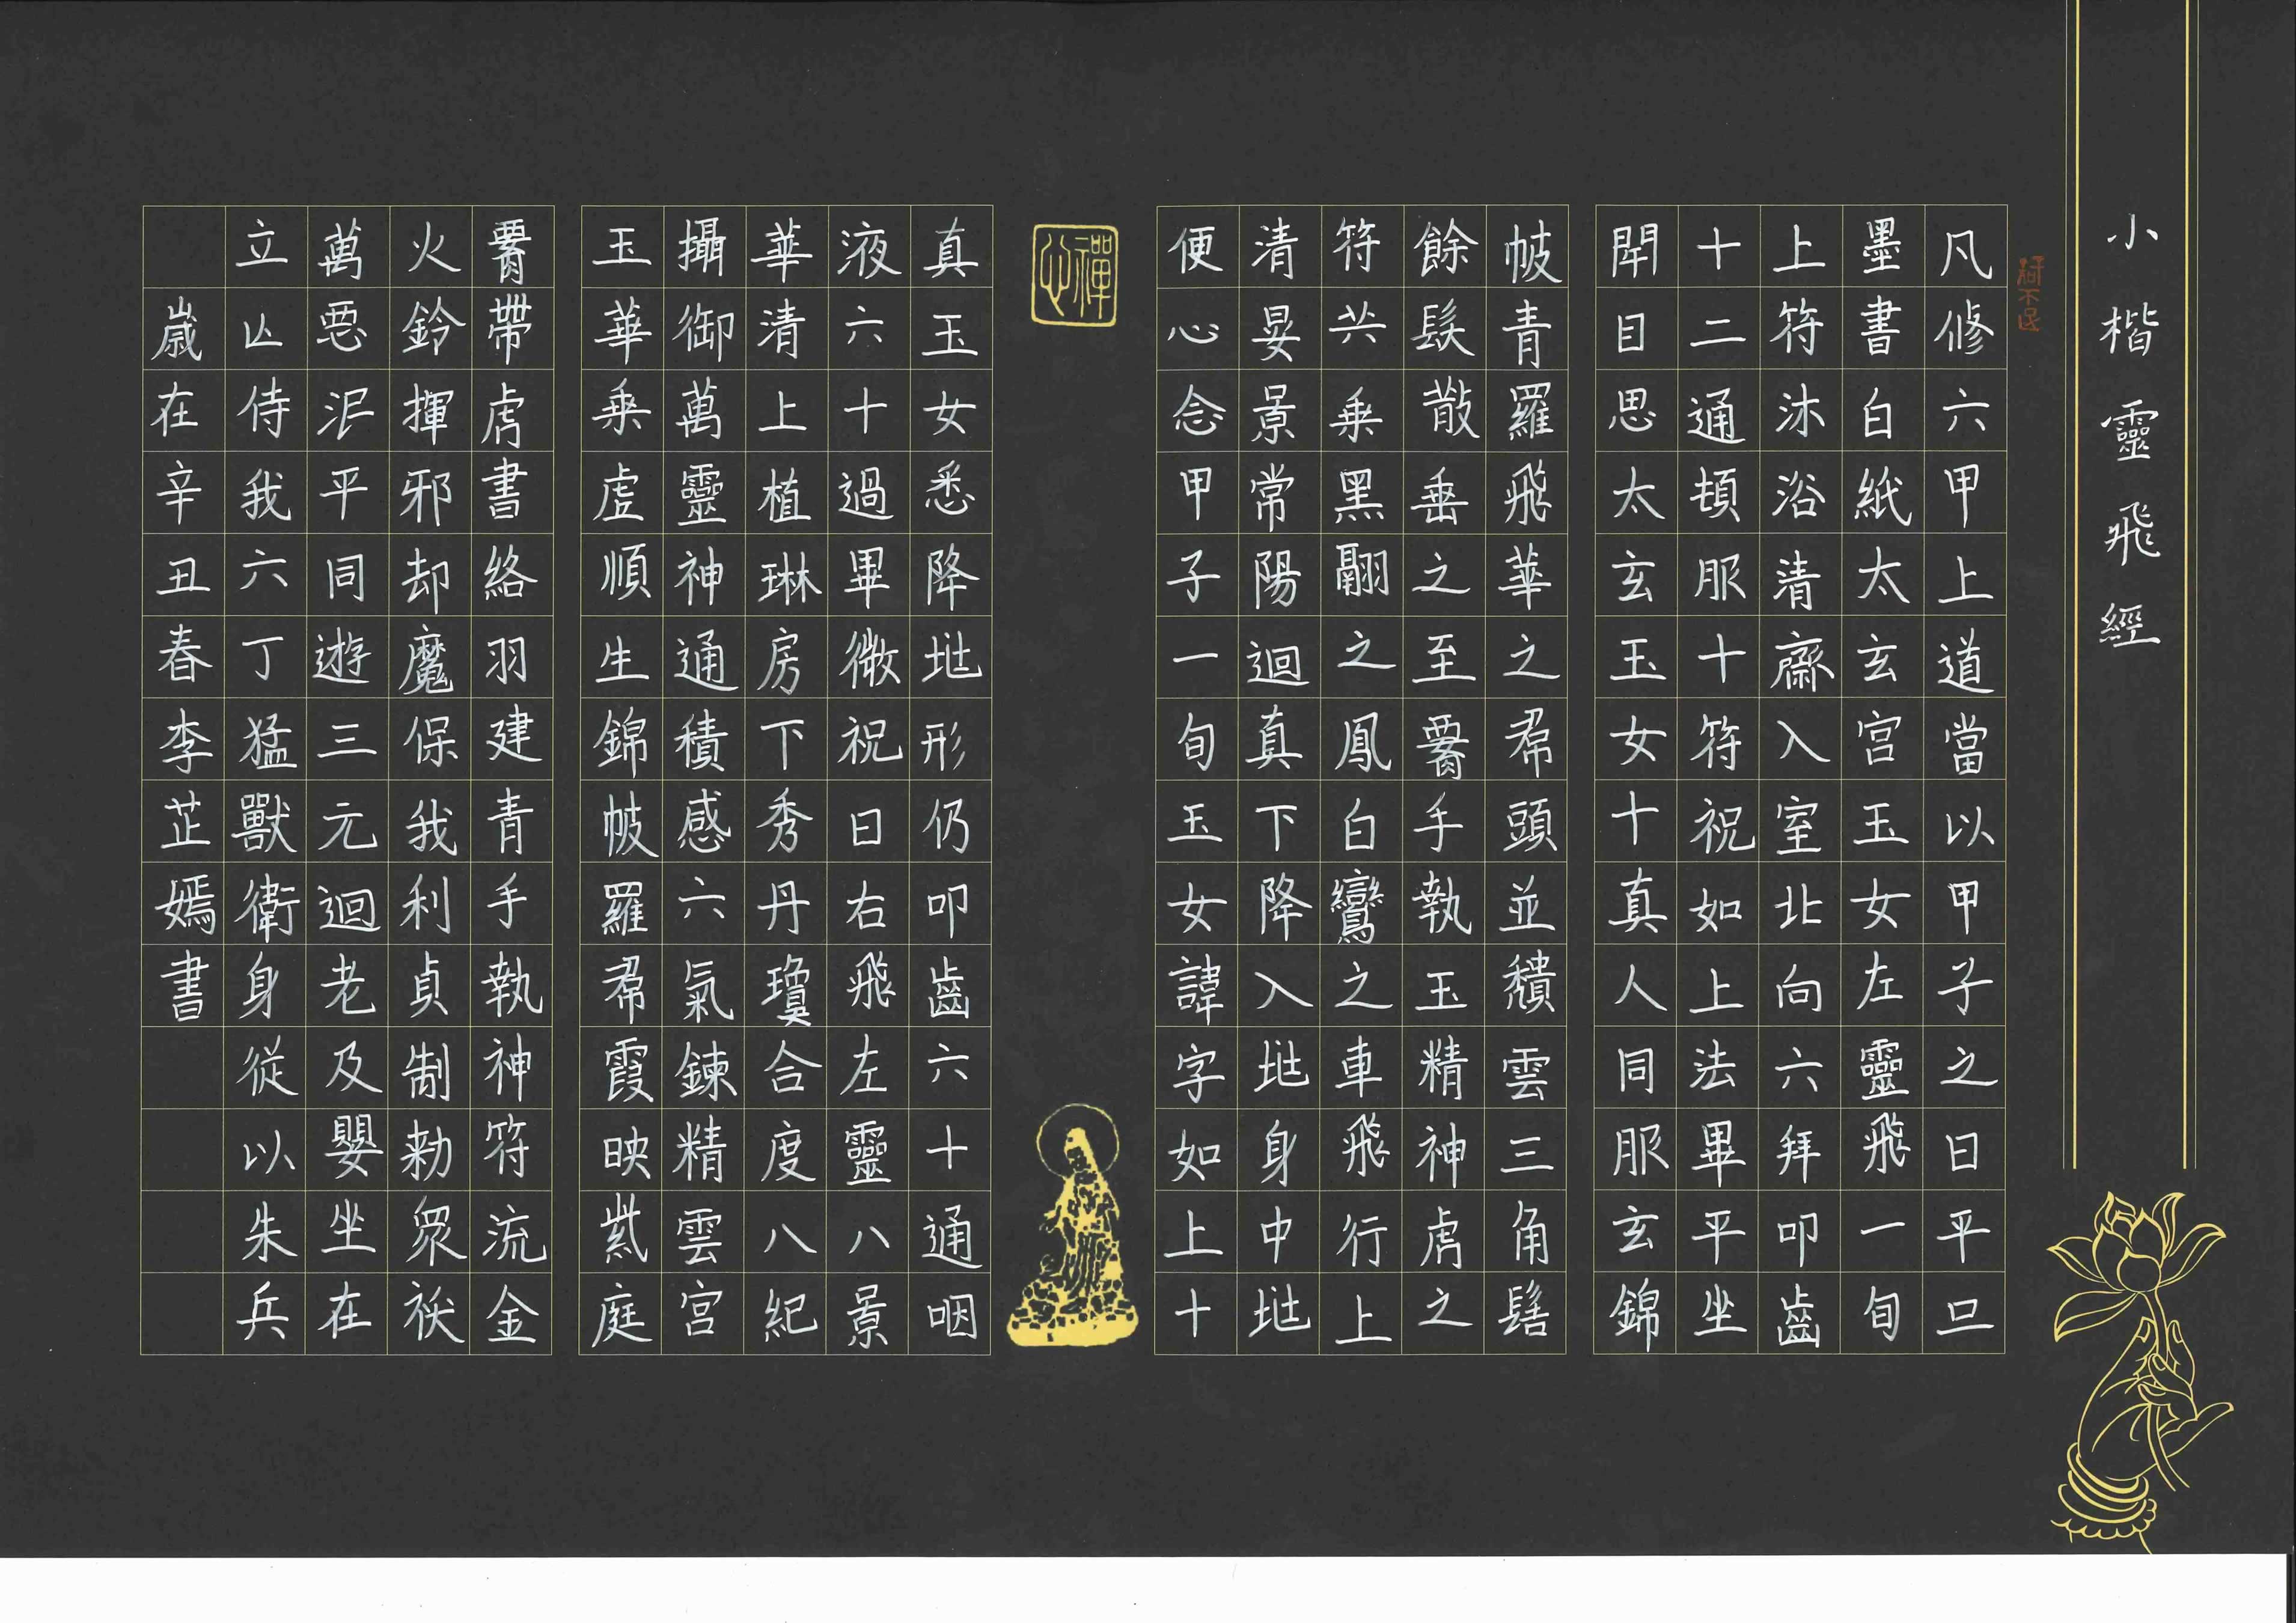 小楷靈飛經
凡修六甲上道當以甲子之日平旦
墨書白紙太玄宮玉女左靈飛一旬
上符沐浴清齋入室北向六拜叩齒
十二通頓服十符祝如上法畢平坐
閉目思太玄玉女十真人同服玄錦
帔青羅飛華之帬頭並頹雲三角髻
餘髮散垂之至腰手執玉精神虎之
符共乘黑翮之鳳白鸞之車飛行上
清晏景常陽迴真下降入兆身中兆
便心念甲子一旬玉女諱字如上十
禪心
真玉女悉降兆形仍叩齒六十通咽
液六十過畢微祝曰右飛左靈八景
華清上植琳房下秀丹瓊合度八紀
攝御萬靈神通積感六氣鍊精雲宮
玉華乘虛順生錦帔羅帬霞映紫庭
腰帶虎書絡羽建青手執神符流金
火鈴揮邪却魔保我利貞制勅眾祅
萬惡泯平同遊三元迴老及嬰坐在
立亾侍我六丁猛獸衛身從以朱兵
歲在辛丑春李芷嫣書